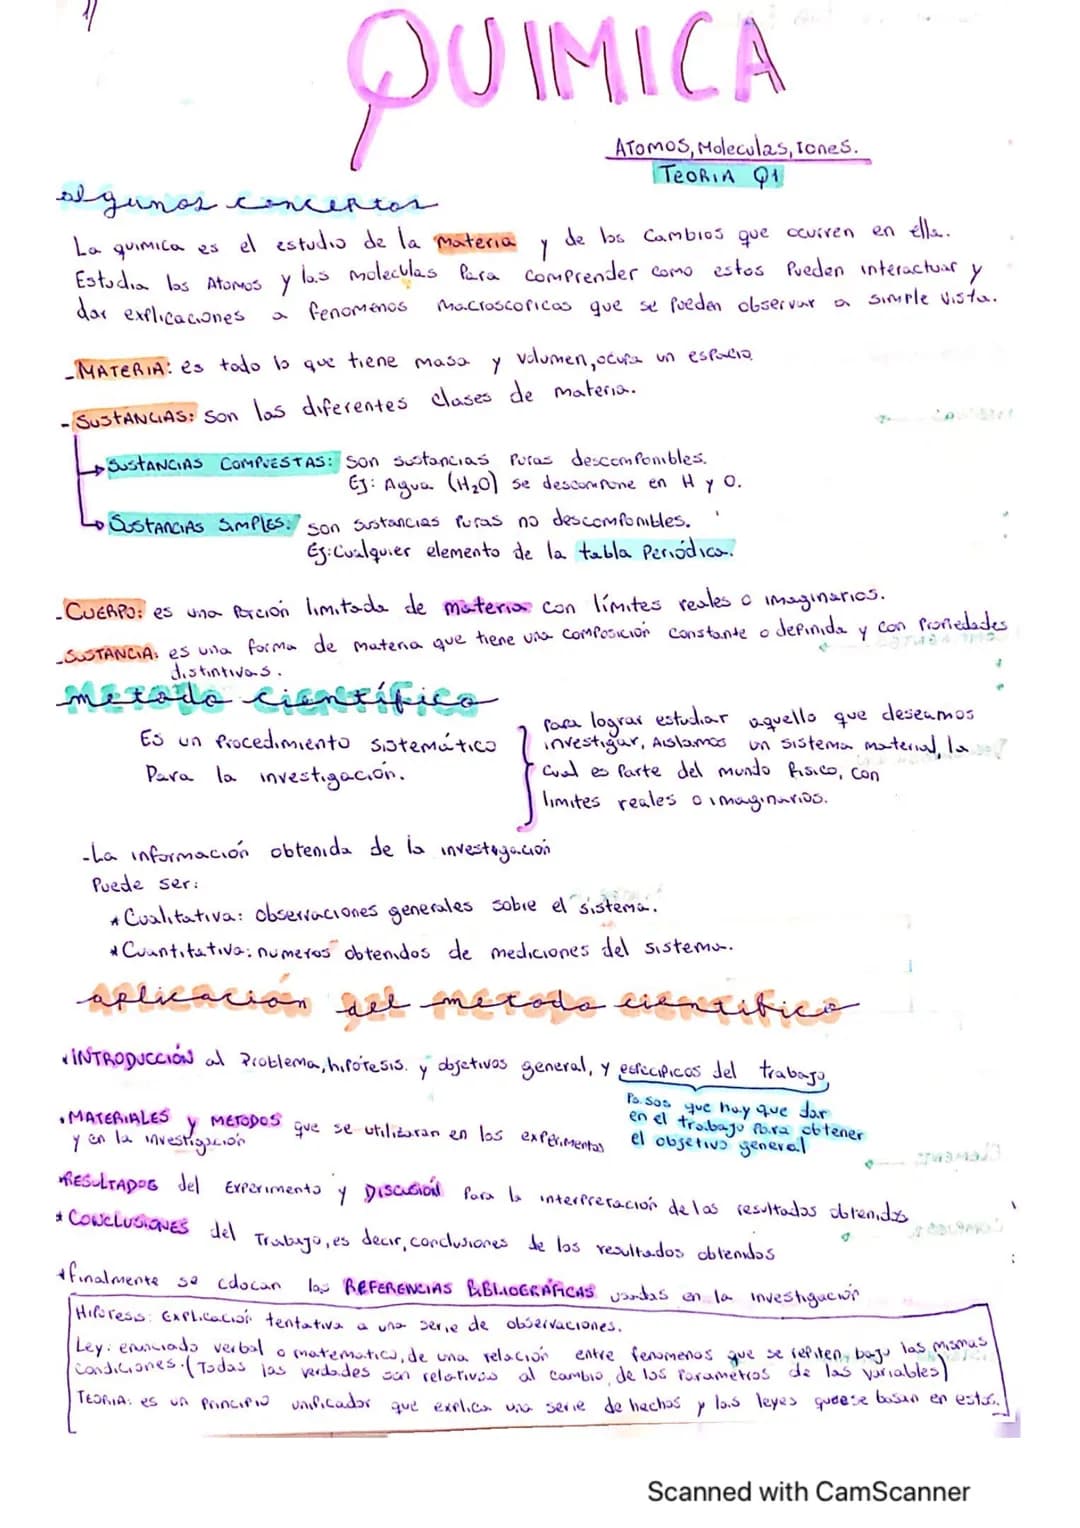 QUIMICA
ATOMOS, Moleculas, Iones.
TEORIA Q1
algunos conceptos
La quimica es el estudio de la Materia y de los Cambios que ocurren en ella.
Estudia los Atomos y las moleculas Para comprender como estos Pueden interactuar y
dar explicaciones a fenomenos Macroscopicos que se pueden observar a simple vista.
- MATERIA: es todo lo que tiene masa y volumen, ocupa un espacio
- SUSTANCIAS: son las diferentes clases de materia.
SUSTANCIAS COMPUESTAS: son sustancias Puras descomponibles.
Ej: Agua (H₂O) se descompone en H y O.
SUSTANCIAS SIMPLES: son sustancias Puras no descomponibles.
Ej: Cualquier elemento de la tabla Periódica.
- CUERPO: es una Porción limitada de materia con límites reales o imaginarios.
- SUSTANCIA: es una forma de materia que tiene una composición constante o definida y con Propiedades
distintivas.
metodo científico
Es un Procedimiento sistemático
Para la investigación.
Para lograr estudiar aquello que deseamos
investigar, Aislamos un sistema material, la
cual es Parte del mundo fisico, con
limites reales o imaginarios.
- La información obtenida de la investigación
Puede ser:
* Cualitativa: observaciones generales sobre el sistema.
* Cuantitativa: numeros obtenidos de mediciones del sistema.
aplicación del metodo cientifico
• INTRODUCCIÓN al Problema, hipótesis. y objetivos general, y especificos del trabajo
Pasos que hay que dar
en el trabajo Para obtener
el objetivo general
• MATERIALES y METODOS que se utilizaran en los experimentos
y en la investigación
* RESULTADOS del Experimento y DISCUSIÓN Para la interpretación de los resultados obtenidos
* CONCLUSIONES del Trabajo, es decir, conclusiones de los resultados obtenidos
* finalmente se colocan las REFERENCIAS BIBLIOGRÁFICAS usadas en la investigación
Hipotesis: Explicación tentativa a una serie de observaciones.
Ley: enunciado verbal o matematico, de una relación entre fenomenos que se repiten, bajo las mismas
condiciones. (Todas las verdades son relativas al cambio, de los Parametros de las variables)
TEORIA: es un Principio unificador que explica una serie de hechos y las leyes que se basan en estos.
Scanned with CamScanner